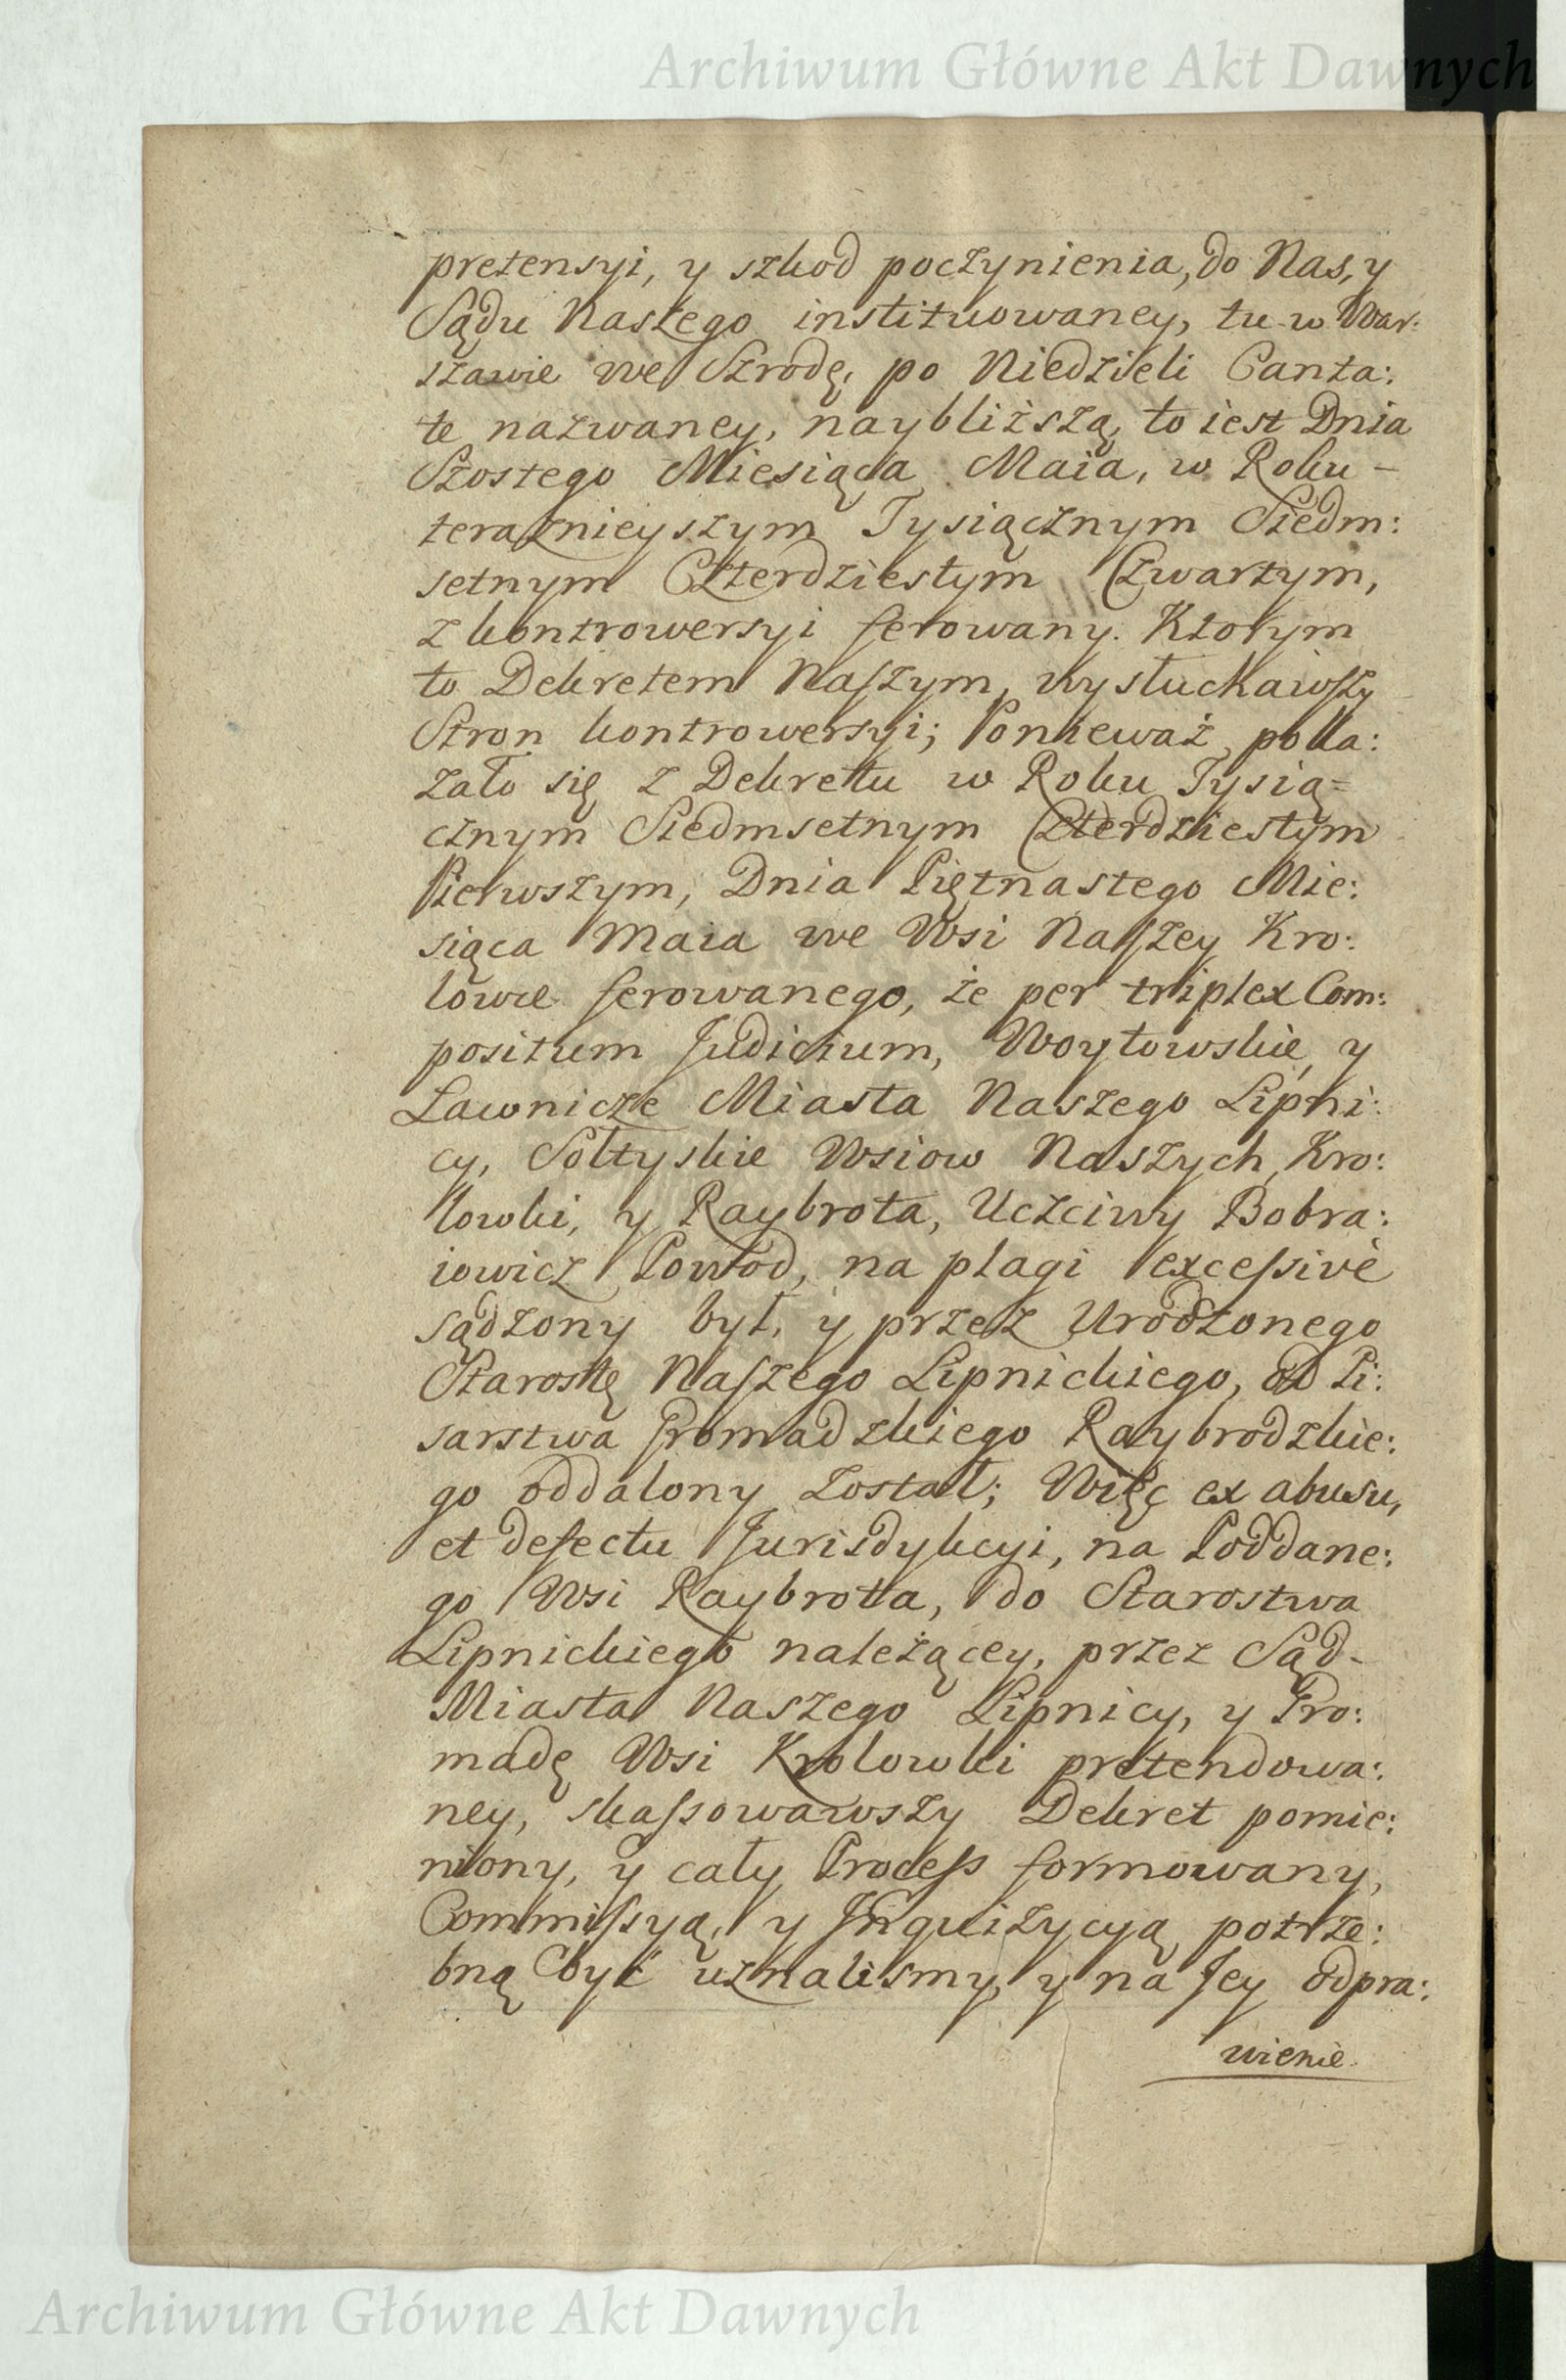 Archiwum Główne Akt Dawnych
pretensyi, y szkod poczynienia, do Nas, y
Sądu Naszego instituowaney, tu w War:
szawie we Szrodę, po Niedzieli Canta:
te nazwaney, naybliższą, to iest Dnia
Szostego Miesiąca Maia, w Roku -
teraznieyszym Tysiącznym Siedm:
setnym Czterdziestym Czwartym,
z kontrowersyi ferowany. Ktorym
to Dekretem Naszym, wysłuchawszy
Stron kontrowersyi; Ponieważ poka:
zało się z Dekretu w Roku Tysią=
cznym Siedmsetnym Czterdziestym
Pierwszym, Dnia Piętnastego Mie:
siąca Maia we Wsi Naszey Kro:
lowce ferowanego, że per triplex Com:
positum Judicium, Woytowskie, y
Ławnicze Miasta Naszego Lipni:
cy, Sołtyskie Wsiow Naszych, Kro:
lowki, y Raybrota, Uczciwy Bobra:
iowicz Powod, na plagi excessivè
sądzony był, y przez Urodzonego
Starostę Naszego Lipnickiego, od Pi:
sarstwa Gromadzkiego Raybrodzkie:
go oddalony został; Więc ex abusu,
et defectu Jurisdykcyi, na Poddane:
go Wsi Raybrotta, do Starostwa
Lipnickiego należącey, przez Sąd -
Miasta Naszego Lipnicy, y Gro:
madę Wsi Krolowki pretendowa:
ney, skassowawszy Dekret pomie:
niony, y cały Process formowany,
Commissyą, y Inquizycyą potrze:
bną być uznalismy, y na Jey odpra:
wienie
Archiwum Główne Akt Dawnych